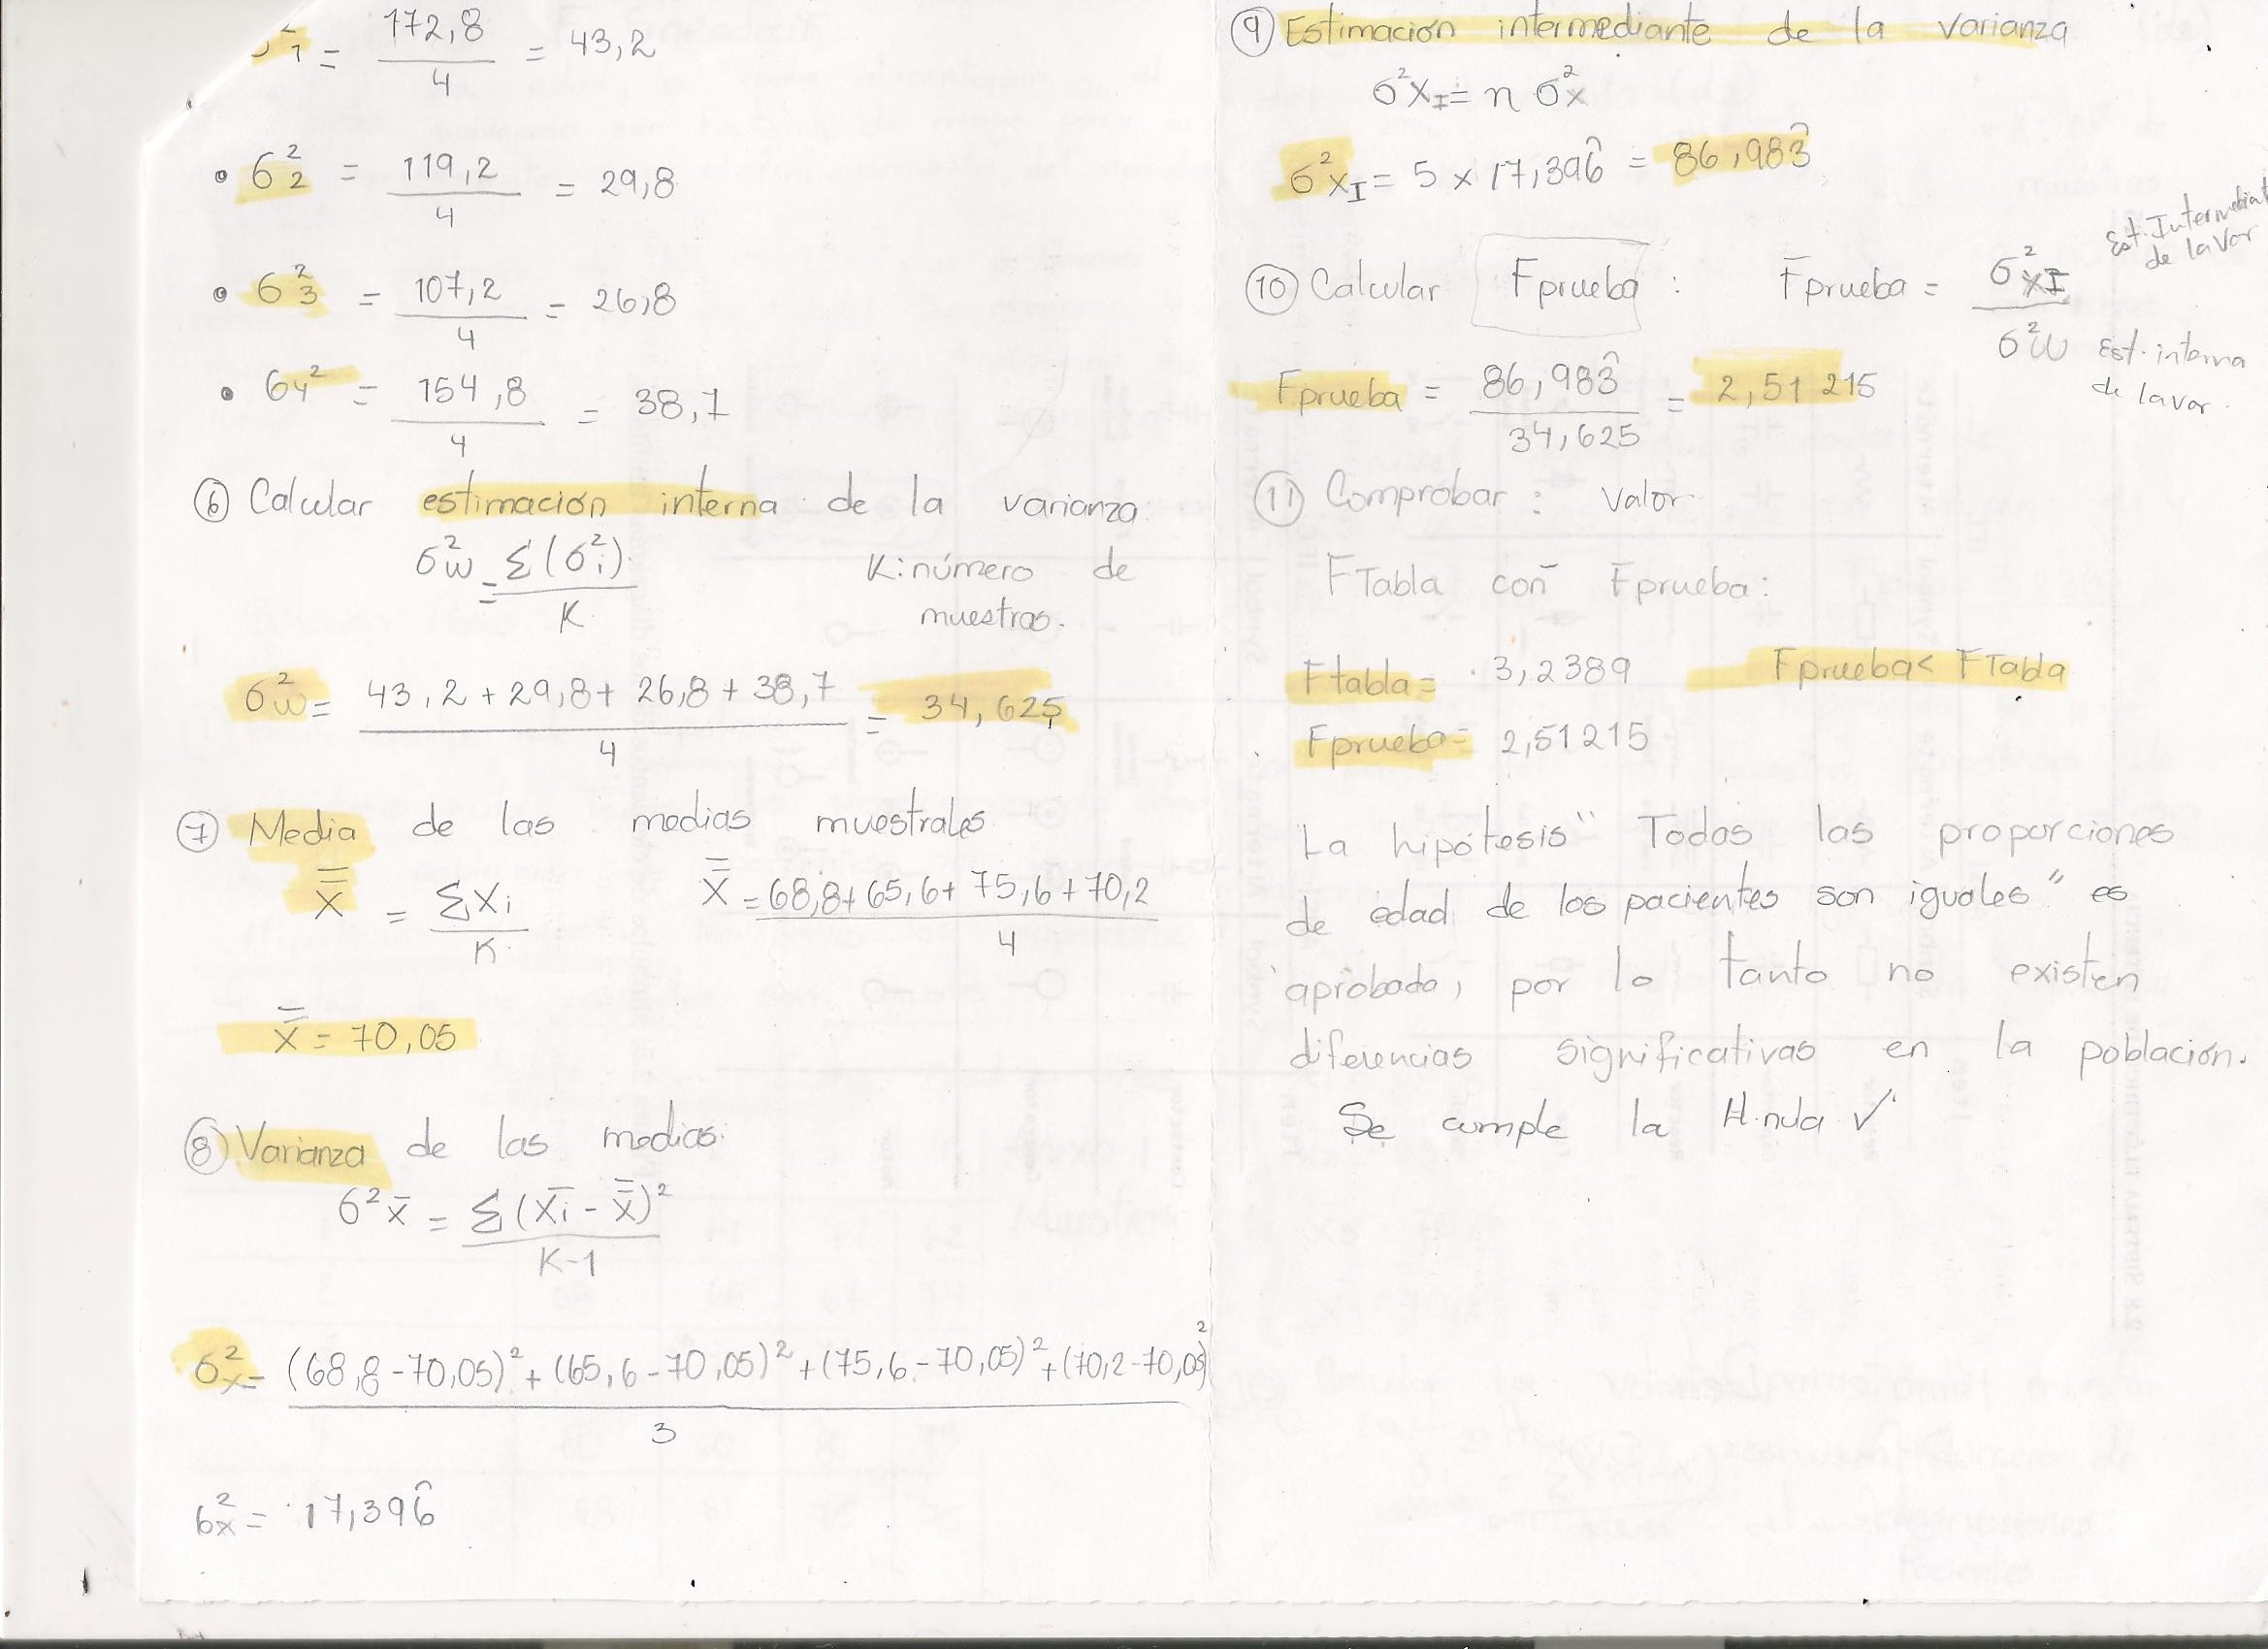 σ²1 = 172,8 / 4 = 43,2
• σ²2 = 119,2 / 4 = 29,8
• σ²3 = 107,2 / 4 = 26,8
• σ4² = 154,8 / 4 = 38,7
⑥ Calcular estimación interna de la varianza
σ²w = Σ(σ²i) / K
K: número de
muestras.
σ²w = 43,2 + 29,8 + 26,8 + 38,7 / 4 = 34,625
⑦ Media de las medias muestrales
x̿ = Σxi / K
x̿ = 68,8 + 65,6 + 75,6 + 70,2 / 4
x̿ = 70,05
⑧ Varianza de las medias:
σ²x̄ = Σ(x̄i - x̿)² / K-1
σ²x = (68,8 - 70,05)² + (65,6 - 70,05)² + (75,6 - 70,05)² + (70,2 - 70,05)² / 3
σ²x = 17,396̂
⑨ Estimación intermediante de la varianza
σ²xI = n σ²x
σ²xI = 5 x 17,396̂ = 86,983̂
⑩ Calcular Fprueba : Fprueba = σ²xI / σ²w
Est. Intermediant
de la Var
Est. interna
de la var.
Fprueba = 86,983̂ / 34,625 = 2,51215
⑪ Comprobar : Valor
FTabla con Fprueba:
Ftabla = 3,2389 Fprueba < FTabla
Fprueba = 2,51215
La hipótesis "Todas las proporciones
de edad de los pacientes son iguales" es
aprobada, por lo tanto no existen
diferencias significativas en la población.
Se cumple la H.nula ✓